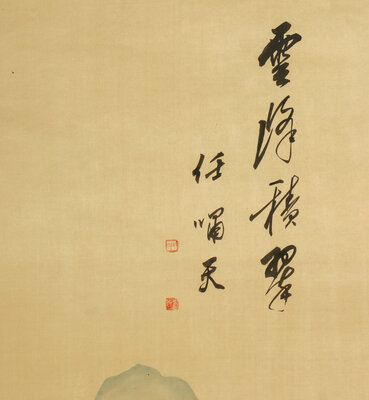 雲峰積翠
任嘯天